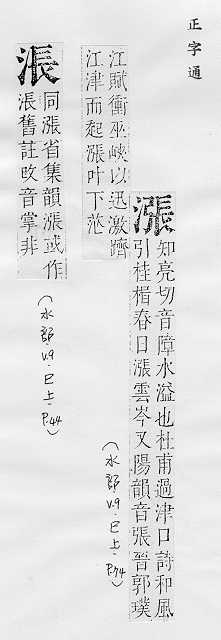 正字通
漲
知亮切音障水溢也杜甫過津口詩和風
引桂楫春日漲雲岑又陽韻音張晉郭璞
江賦衝巫峽以迅激躋
江津而起漲叶下茫
(水部.V.9.巳上.P.74)
涱
同漲省集韻漲或作
涱舊註改音掌非
(水部.V.9.巳上.P.44)